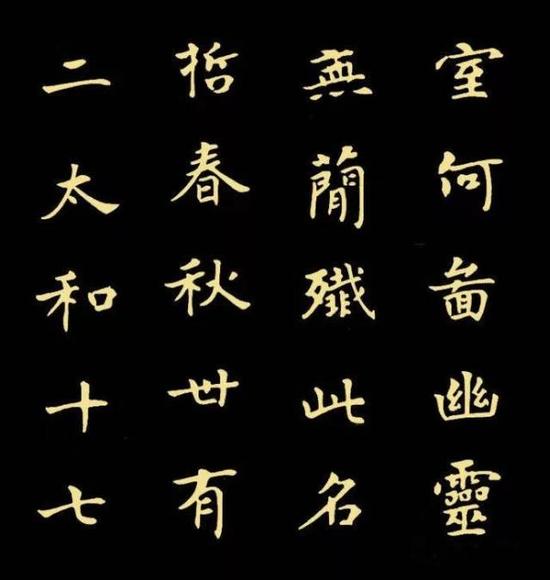 室何啚幽靈
無簡殲此名
哲春秋丗有
二太和十七